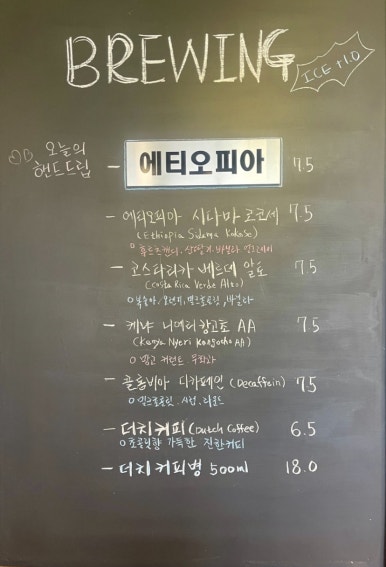 BREWING
ICE +1.0
오늘의
핸드드립
- 에티오피아 7.5
- 에티오피아 시다마 코코세 7.5
(Ethiopia Sidama Kokose)
- 코스타리카 베르데 알토 7.5
(Costa Rica Verde Alto)
- 케냐 니에리 캉고초 AA 7.5
(Kenya Nyeri Kangocho AA)
- 콜롬비아 디카페인 (Decaffein) 7.5
- 더치커피 (Dutch Coffee) 6.5
초콜릿향 가득한 진한커피
- 더치커피병 500ml 18.0